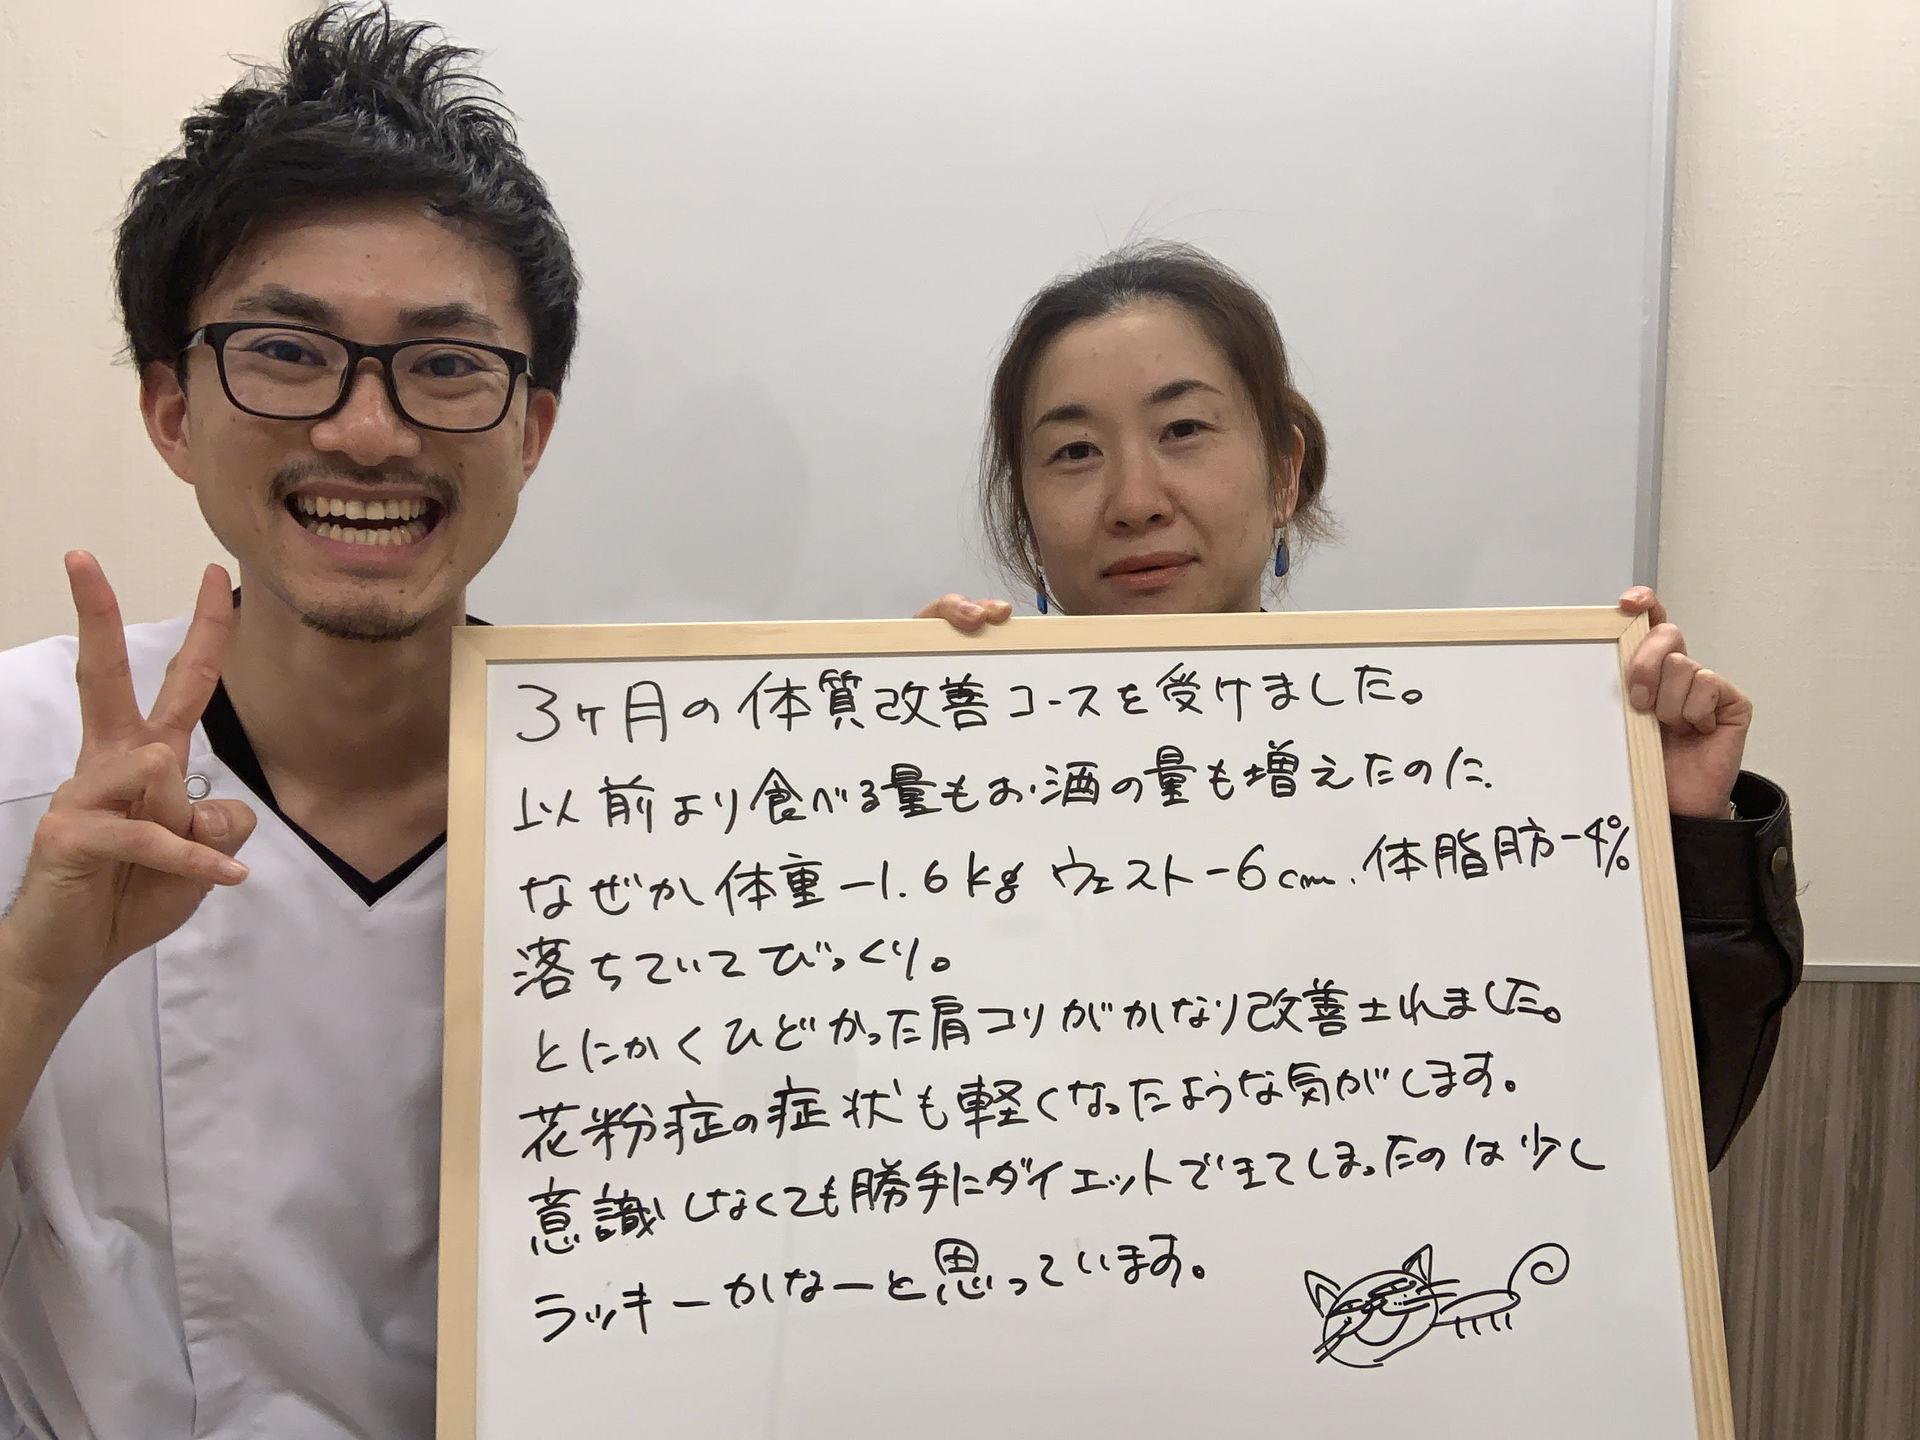 3ヶ月の体質改善コースを受けました。
以前より食べる量もお酒の量も増えたのに、
なぜか体重-1.6kg ウエスト-6cm、体脂肪-4%
落ちていてびっくり。
とにかくひどかった肩コリがかなり改善されました。
花粉症の症状も軽くなったような気がします。
意識しなくても勝手にダイエットできてしまったのは少し
ラッキーかなーと思っています。